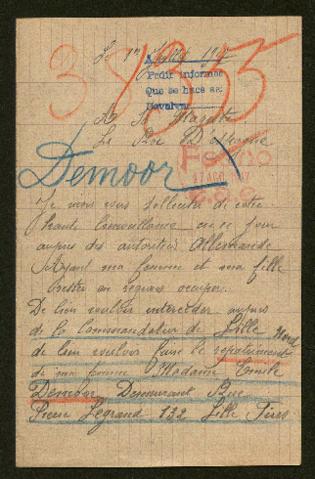 38355
Le 1er Juillet 1917
A
Pedir informes
Que se hace en
Devolver
A Sa Majesté
Le Roi D'espagne
Fecho
17 AGO 1917
Demoor
Je viens vous solliciter de votre
haute bienveillance en ce jour
aupres des autorités Allemande
Ayant ma femme et ma fille
restée en region occuper.
De bien vouloir interceder aupres
de la Commandatur de Lille Nord
de bien vouloir faire le repatriement
de ma femme Madame Emile
Demoor Demeurant Rue
Pierre Legrand 132 Lille Fives